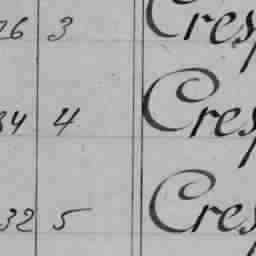 26 3 Cresp
34 4 Cresp
32 5 Cresp